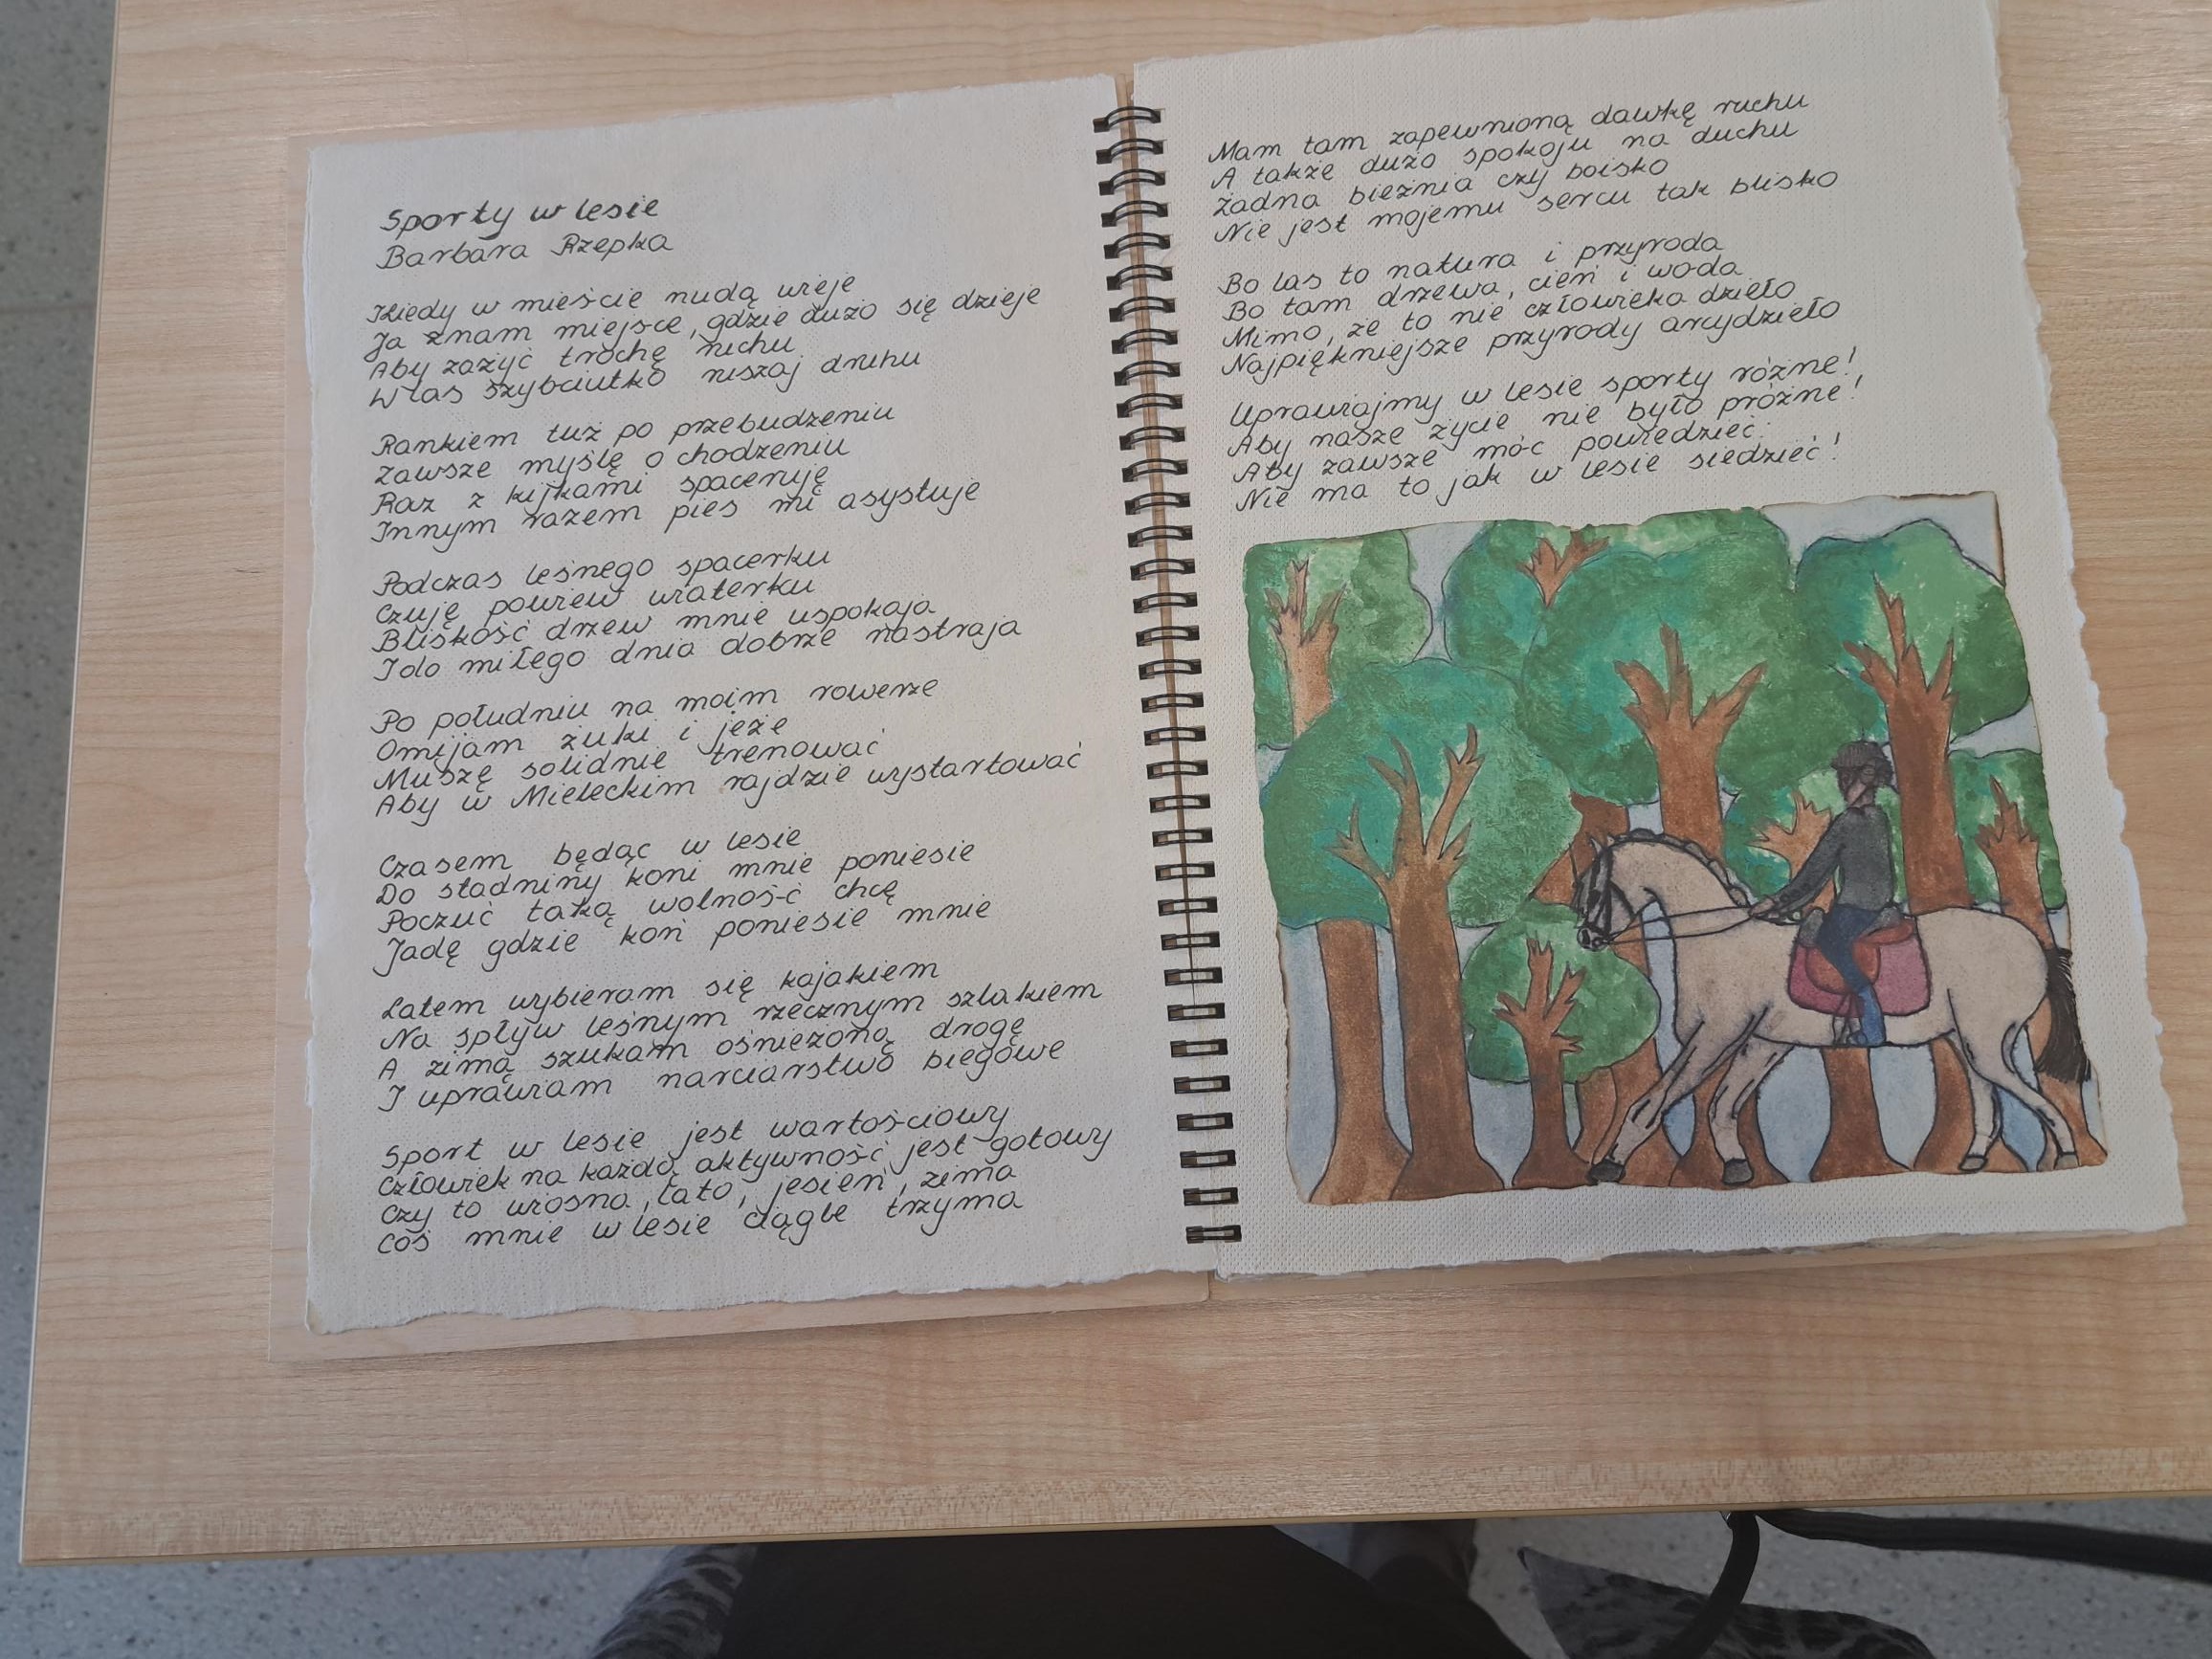 Sporty w lesie
Barbara Rzepka
Kiedy w mieście nudą wieje
Ja znam miejsce, gdzie dużo się dzieje
Aby zażyć trochę ruchu
W las szybciutko ruszaj druhu
Rankiem tuż po przebudzeniu
Zawsze myślę o chodzeniu
Raz z kijkami spaceruję
Innym razem pies mi asystuje
Podczas leśnego spacerku
Czuję powiew wiaterku
Bliskość drzew mnie uspokaja
I do miłego dnia dobrze nastraja
Po południu na moim rowerze
Omijam żuki i jeże
Muszę solidnie trenować
Aby w Mieleckim rajdzie wystartować
Czasem będąc w lesie
Do stadniny koni mnie poniesie
Poczuć taką wolność chcę
Jadę gdzie koń poniesie mnie
Latem wybieram się kajakiem
Na spływ leśnym rzecznym szlakiem
A zimą szukam ośnieżoną drogę
I uprawiam narciarstwo biegowe
Sport w lesie jest wartościowy
Człowiek na każdą aktywność jest gotowy
Czy to wiosna, lato, jesień, zima
Coś mnie w lesie ciągle trzyma
Mam tam zapewnioną dawkę ruchu
A także dużo spokoju na duchu
Żadna bieżnia czy boisko
Nie jest mojemu sercu tak blisko
Bo las to natura i przyroda
Bo tam drzewa, cień i woda
Mimo, że to nie człowieka dzieło
Najpiękniejsze przyrody arcydzieło
Uprawiajmy w lesie sporty różne!
Aby nasze życie nie było próżne!
Aby zawsze móc powiedzieć:
Nie ma to jak w lesie siedzieć!